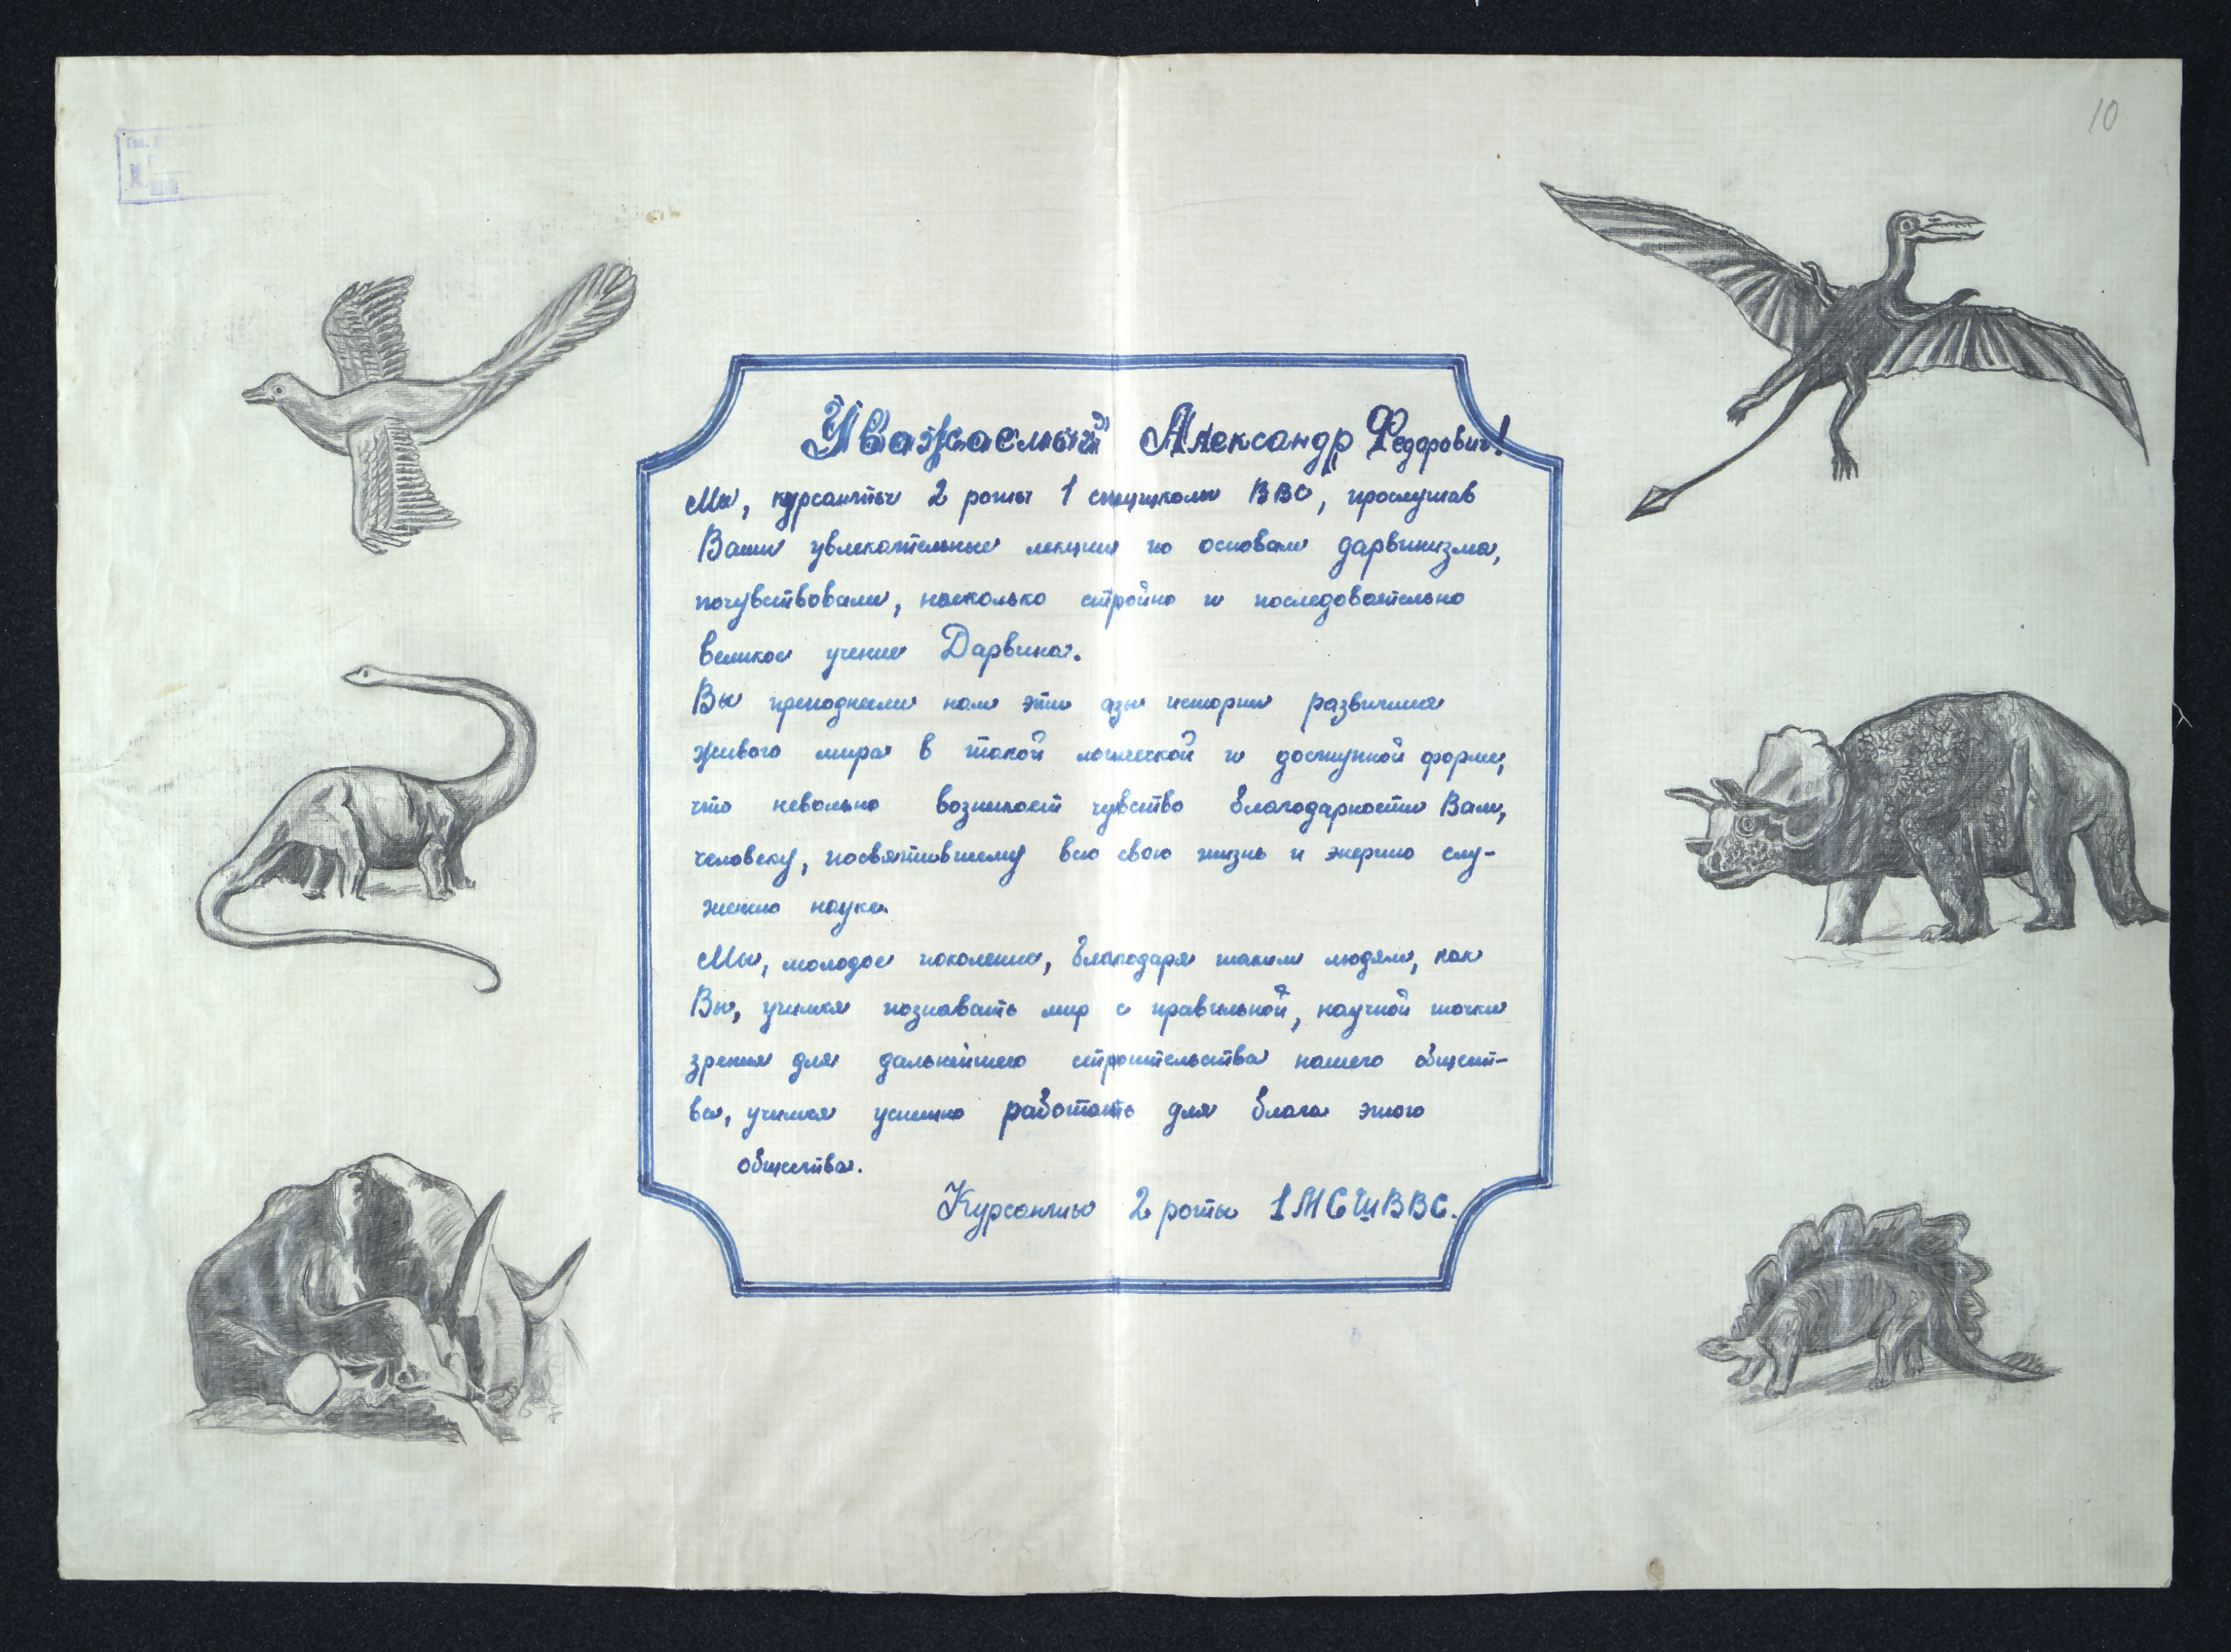 10
Уважаемый Александр Федорович!
Мы, курсанты 2 роты 1 спецшколы ВВС, прослушав
Ваши увлекательные лекции по основам дарвинизма,
почувствовали, насколько стройно и последовательно
великое учение Дарвина.
Вы преподнесли нам эти азы истории развития
живого мира в такой логической и доступной форме,
что невольно возникает чувство благодарности Вам,
человеку, посвятившему всю свою жизнь и энергию слу-
жению науке.
Мы, молодое поколение, благодаря таким людям, как
Вы, учимся познавать мир с правильной, научной точки
зрения для дальнейшего строительства нашего общест-
ва, учимся успешно работать для блага этого
общества.
Курсанты 2 роты 1МСШВВС.